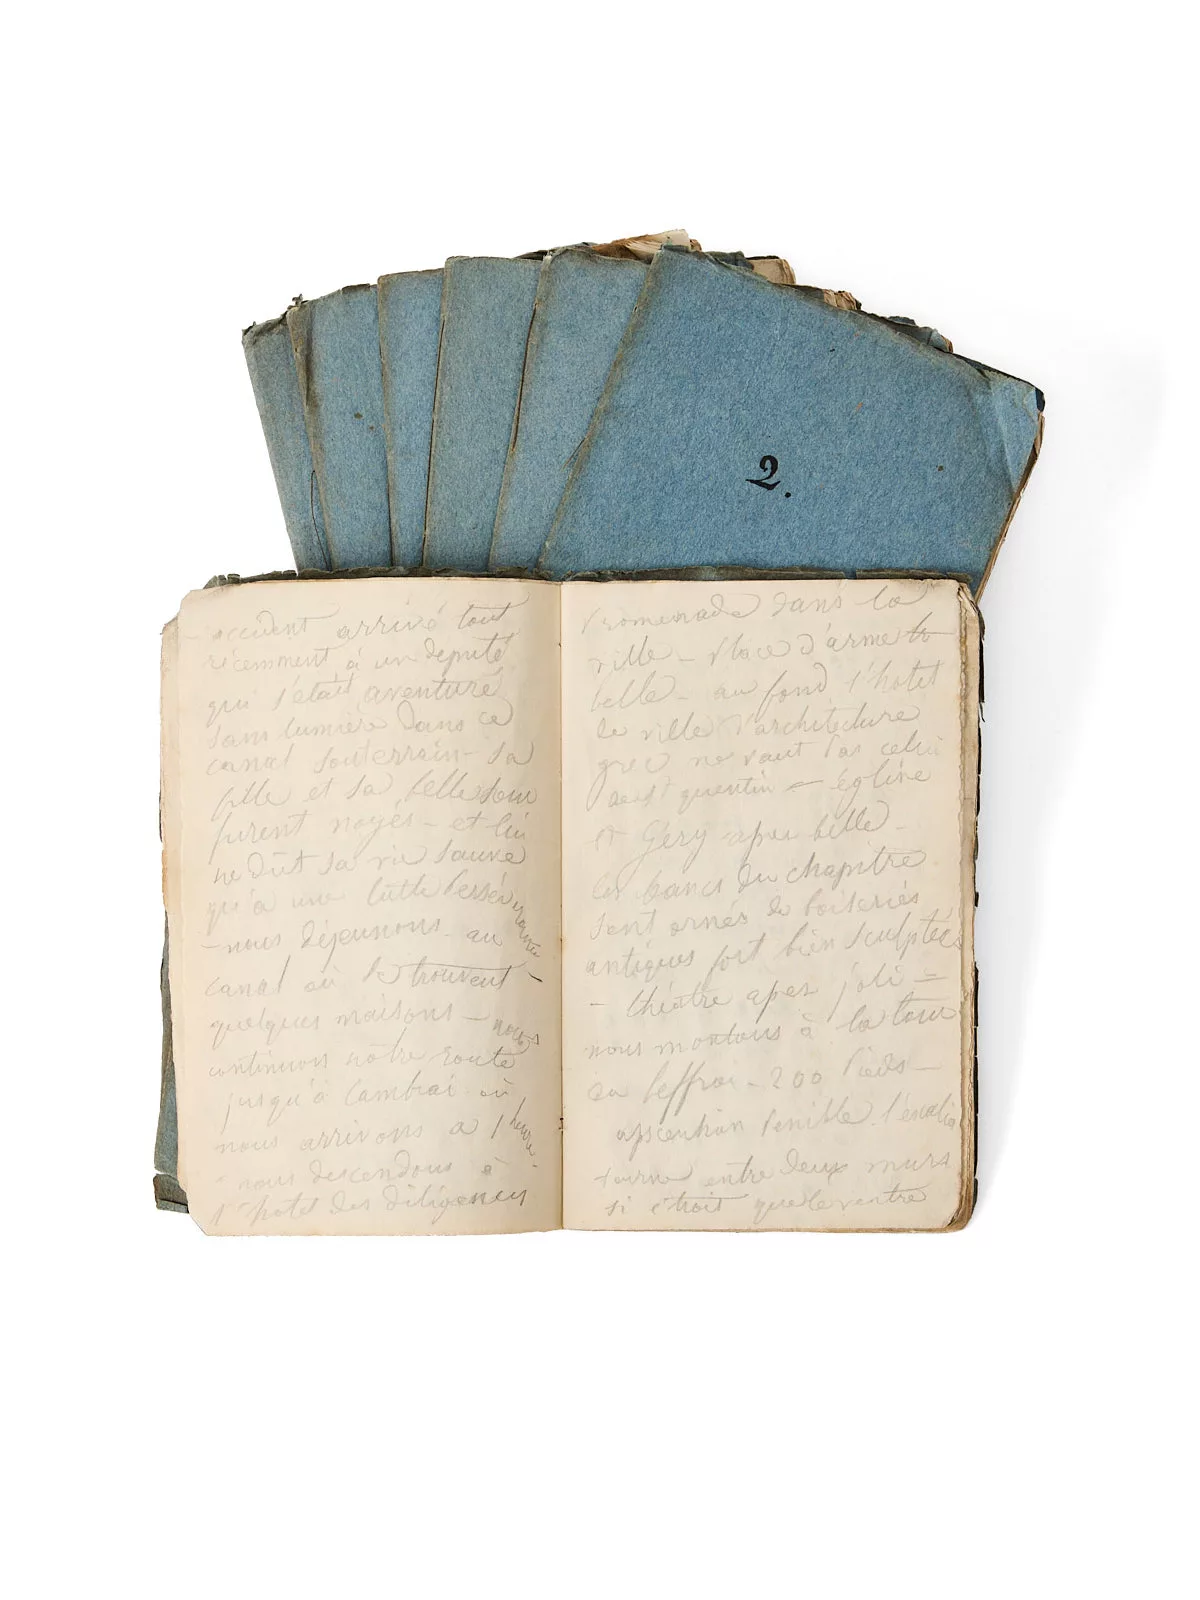 2.
– accident arrivé tout
récemment à un député
qui s'était aventuré
sans lumière dans ce
canal souterrain – sa
fille et sa belle sœur
furent noyés – et lui
ne dût sa vie sauve
qu'à une lutte persévérante
– nous déjeunons au
canal où se trouvent –
quelques maisons – nous
continuons nôtre route
jusqu'à Cambrai où
nous arrivons à 1 heure –
– nous descendons à
l'hotel des diligences
Promenade dans la
ville – place d'arme tr
belle – au fond l'hotel
de ville d'architecture
grec ne vaut pas celui
de St quentin – église
St Géry assez belle –
les bancs du chapitre
sont ornés de boiseries
antiques fort bien sculptées
– théâtre assez joli =
nous montons à la tour
du beffroi – 200 pieds –
ascention penible l'escalier
tourne entre deux murs
si étroit que le ventre